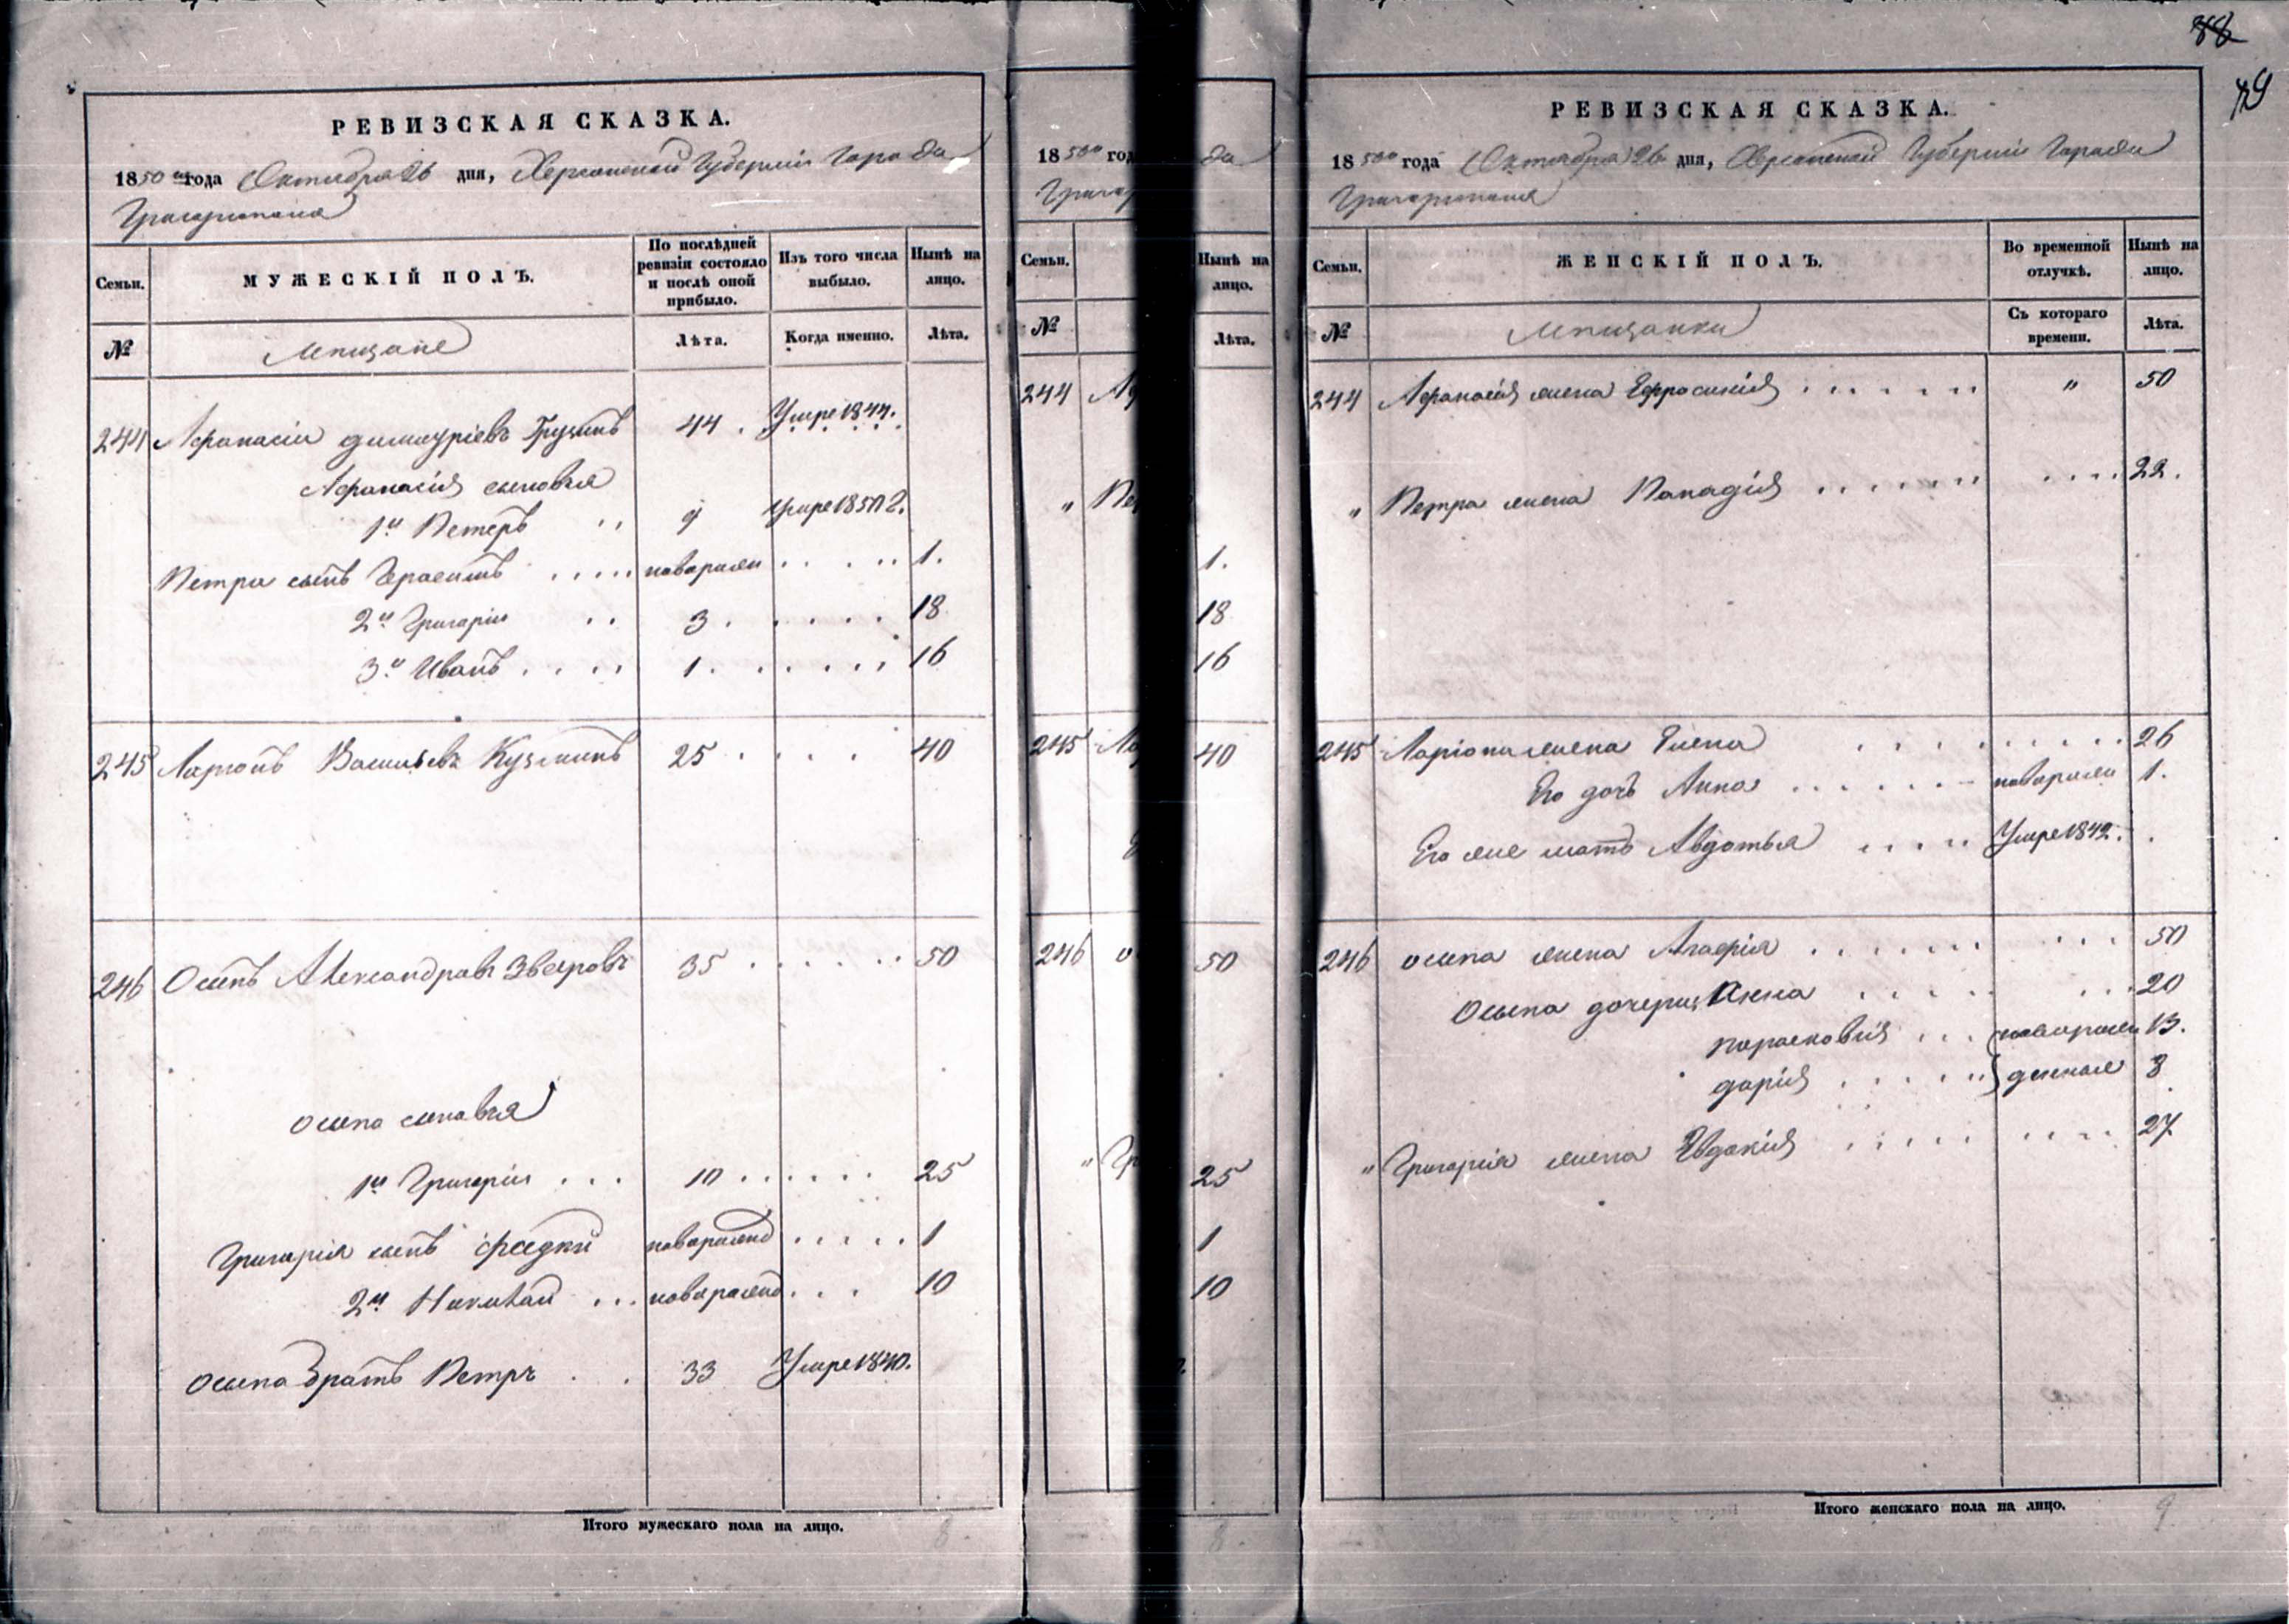 88
79
РЕВИЗСКАЯ СКАЗКА.
1850 года Октября 26 дня, Херсонской Губерніи Города
Григоріополя
Семьи. МУЖЕСКІЙ ПОЛЪ. По послѣдней ревизіи состояло и послѣ оной прибыло. Изъ того числа выбыло. Нынѣ на лицо.
№ Мещане Лѣта. Когда именно. Лѣта.
244 Афанасіи димитріевъ 44 Умре 1844.
Афанасія сыновья
1й Петеръ 9 умре 1850 г.
Петра сынъ Герасимъ новорожд 1.
2й Григоріи 3 18
3й Иванъ 1 16
245 Ларіонъ Васильевъ Кузминъ 25 40
246 Осипъ Александровъ Зверовъ 35 50
осипа сыновья
1й Григоріи 10 25
Григорія сынъ новорожд 1
2й Николай новорожд 10
осипа братъ Петръ 33 Умре 1840.
Итого мужескаго пола на лицо. 8
1850 год
да
Семьи. Нынѣ на лицо.
№ Лѣта.
244
1.
18
16
245 40
246 50
25
1
10
РЕВИЗСКАЯ СКАЗКА.
1850 года Октября 26 дня, Херсонской Губерніи Города
Григоріополя
Семьи. ЖЕНСКІЙ ПОЛЪ. Во временной отлучкѣ. Нынѣ на лицо.
№ Мещанки Съ котораго времени. Лѣта.
244 Афанасія жена Ефросинія " 50
" Петра жена 22.
245 Ларіона жена Елена 26
Его дочь Анна новорожд 1.
Его же мать Авдотья Умре 1842.
246 осипа жена Агафія 50
Осипа дочери Анна 20
парасковія новорожд 13.
дарія денная 8
" Григорія жена Евдокія 27
Итого женскаго пола на лицо. 9